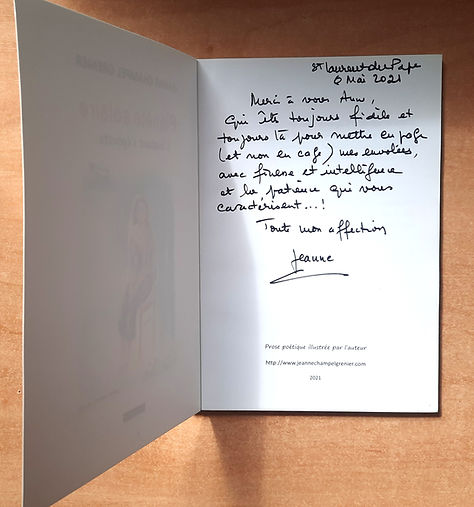 St Laurent du Pape
6 Mai 2021
Merci à vous Ann,
qui êtes toujours fidèle et
toujours là pour mettre en page
(et non en cage) mes envolées,
avec finesse et intelligence
et la patience qui vous
caractérisent...!
Toute mon affection
Jeanne
Prose poétique illustrée par l'auteur
http://www.jeannechampelgrenier.com
2021